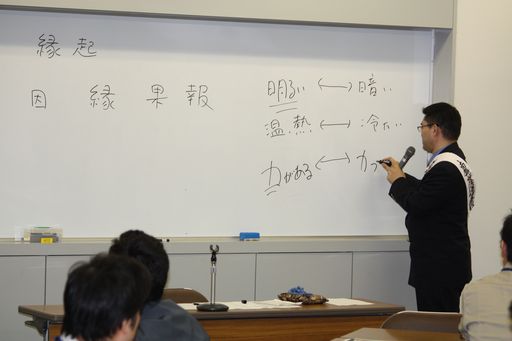 縁起
因 縁 果 報
明るい ⟷ 暗い
温.熱 ⟷ 冷たい
力がある ⟷ 力